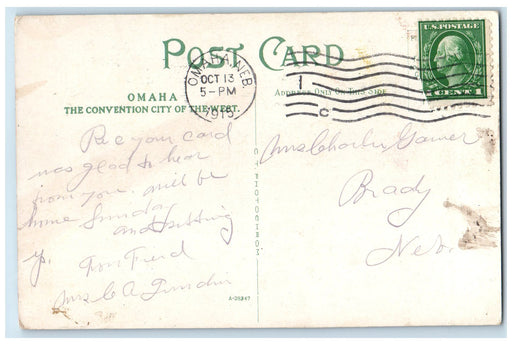 POST CARD
U.S. POSTAGE
1 CENT 1
OMAHA, NEB.
OCT 13
5-PM
1915
OMAHA
THE CONVENTION CITY OF THE WEST.
ADDRESS ONLY ON THIS SIDE
1
C
Rec your card
was glad to hear
from you. will be
home Sunday
and
Your Friend
Mrs C A
Mrs Charles
Brady
Neb.
A-29247